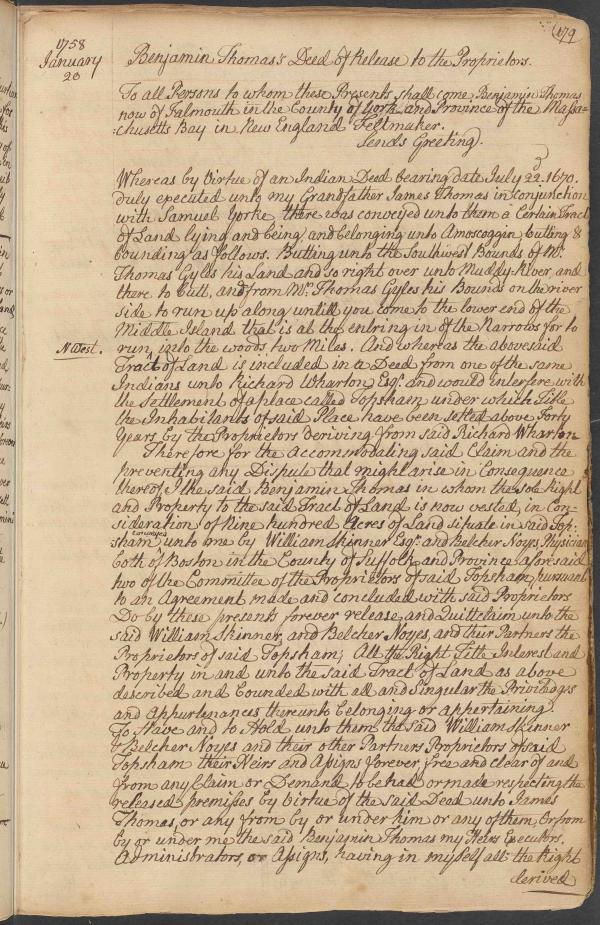 179
1758
January
20
Benjamin Thomas's Deed of Release to the Proprietors.
To all Persons to whom these Presents shall come Benjamin Thomas
now of Falmouth in the County of York and Province of the Massa-
:chusetts Bay in New England Feltmaker.
Sends Greeting.
Whereas by Virtue of an Indian Deed bearing date July 22. 1670.
duly executed unto my Grandfather James Thomas in conjunction
with Samuel Yorke, there was conveyed unto them a Certain Tract
of Land lying and being and belonging unto Amoscoggin butting &
bounding as follows. Butting unto the Southwest Bounds of Mr.
Thomas Gyles his Land and so right over unto Muddy River, and
there to butt, and from Mr. Thomas Gyles his Bounds on the river
side to run up along untill you come to the lower end of the
Middle Island that is at the entring in of the Narrows for to
run N West. into the woods two Miles. And whereas the abovesaid
Tract of Land is included in a Deed from one of the same
Indians unto Richard Wharton Esqr. and would interfere with
the Settlement of a place called Topsham under which Title
the Inhabitants of said Place have been settled above Forty
Years by the Proprietors deriving from said Richard Wharton
Therefore for the accommodating said Claim and the
preventing any Dispute that might arise in Consequence
thereof I the said Benjamin Thomas in whom the sole Right
and Property to the said Tract of Land is now vested, in Con-
sideration of Nine hundred Acres of Land situate in said Top-
sham conveyed unto me by William Skinner Esqr. and Belcher Noyes Physician
both of Boston in the County of Suffolk and Province aforesaid
two of the Committee of the Proprietors of said Topsham, pursuant
to an Agreement made and concluded with said Proprietors
Do by these presents forever release and Quittclaim unto the
said William Skinner, and Belcher Noyes, and their Partners the
Proprietors of said Topsham; All the Right Title Interest and
Property in and unto the said Tract of Land as above
described and bounded with all and Singular the Priviledges
and Appurtenances thereunto belonging or appertaining
To Have and to Hold unto them the said William Skinner
& Belcher Noyes and their other Partners Proprietors of said
Topsham their Heirs and Assigns forever, free and clear of and
from any Claim or Demand to be had or made respecting the
released premisses by Virtue of the said Deed unto James
Thomas, or any from by or under him or any of them, Or from
by or under me the said Benjamin Thomas my Heirs Executrs.
Administrators, or Assigns, having in my self all the Right
derived